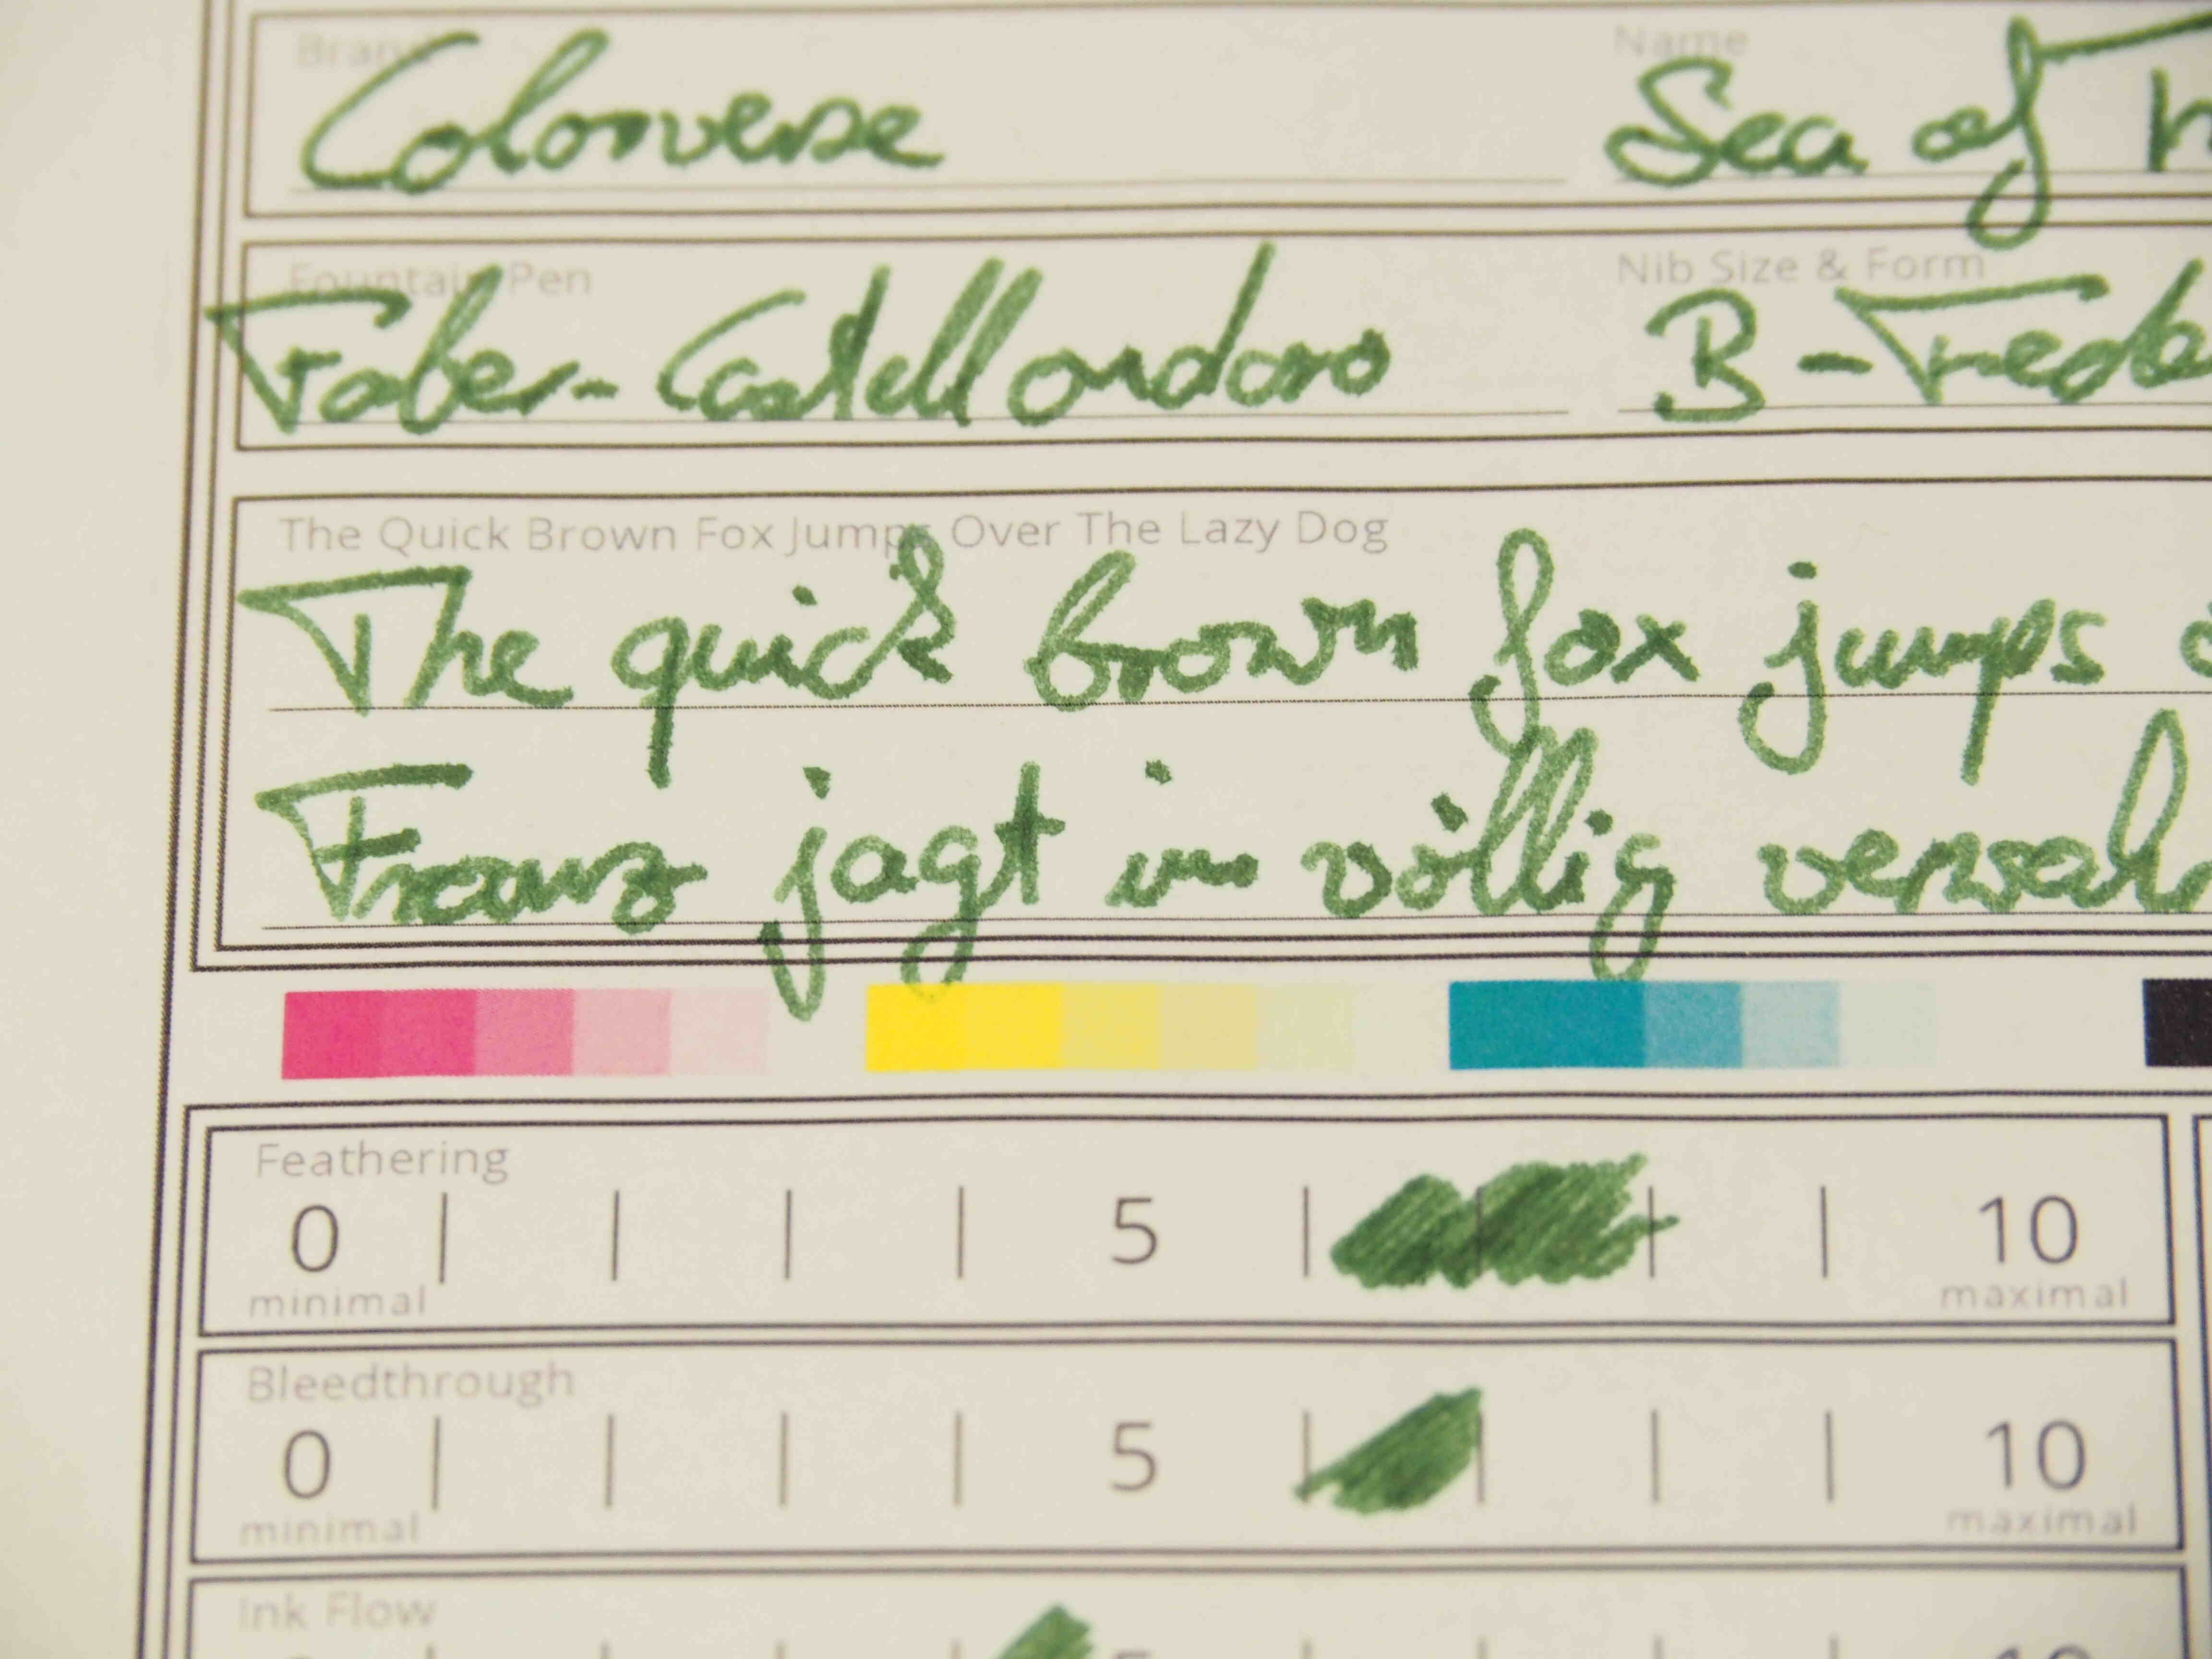 Brand Name
Colorverse Sea of T
Fountain Pen Nib Size & Form
Faber-Castell Ondoro B - Fede
The Quick Brown Fox Jumps Over The Lazy Dog
The quick brown fox jumps o
Franz jagt im völlig verwah
Feathering
0 5 10
minimal maximal
Bleedthrough
0 5 10
minimal maximal
Ink Flow
5 10